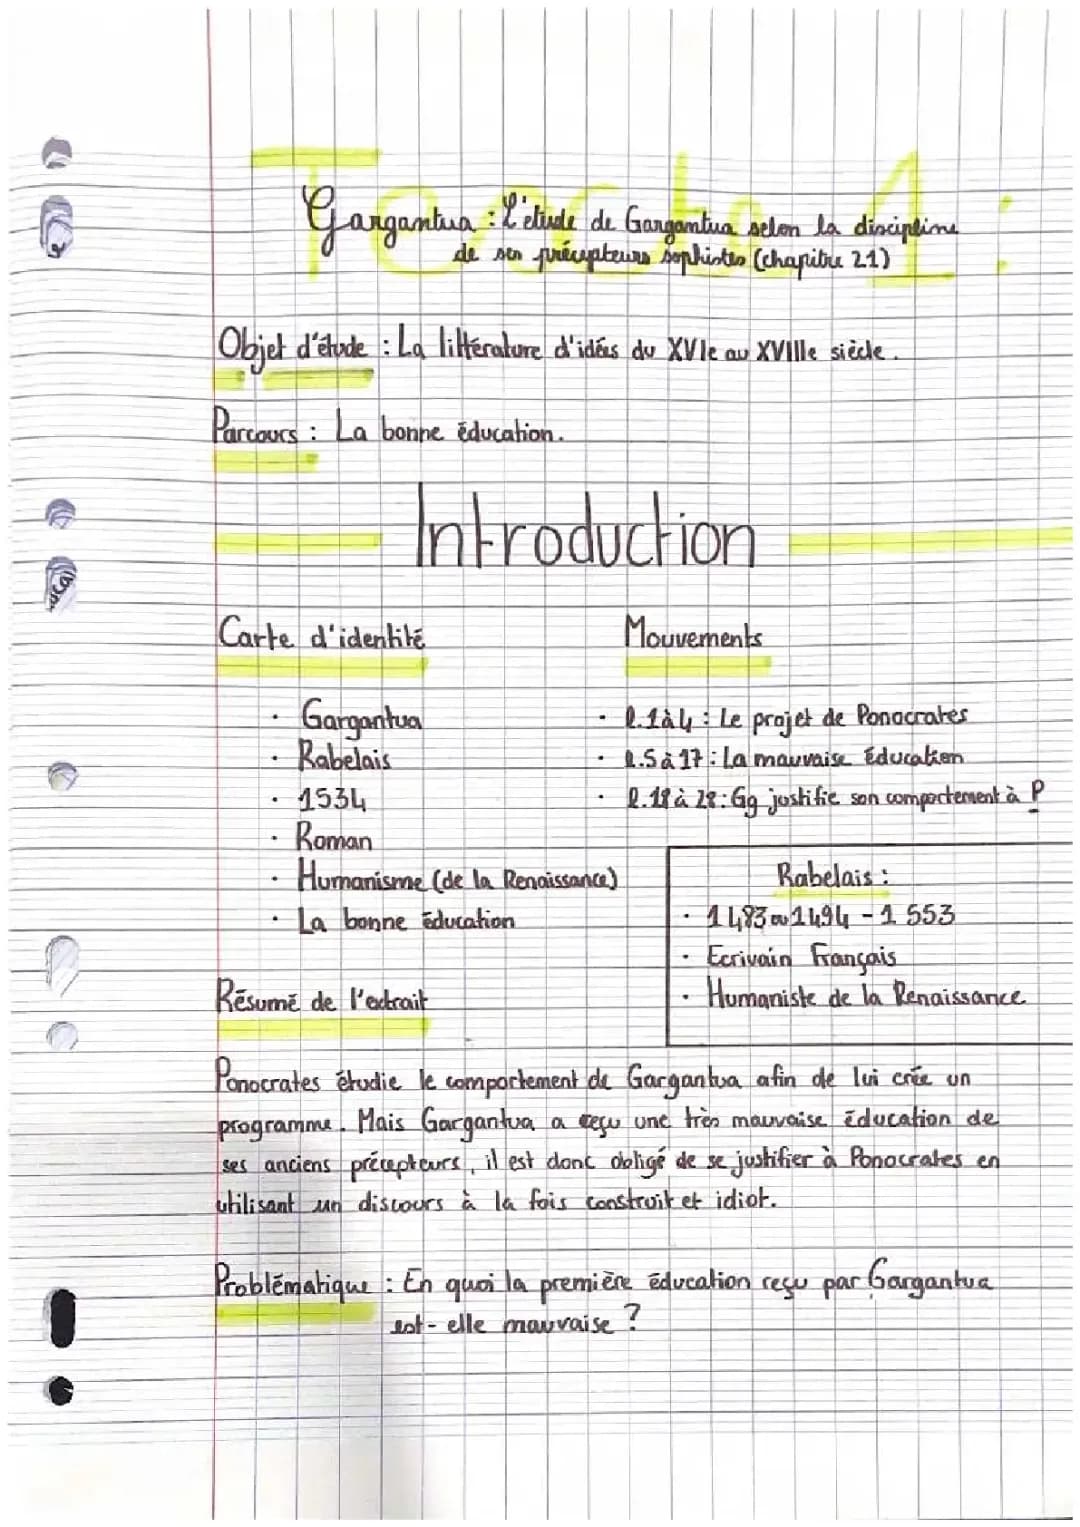 Texte 1 :
Gargantua : L'étude de Gargantua selon la discipline
de ses précepteurs sophistes (chapitre 21)
Objet d'étude : La littérature d'idées du XVIe au XVIIIe siècle.
Parcours : La bonne éducation.
Introduction
Carte d'identité
· Gargantua
· Rabelais
· 1534
· Roman
· Humanisme (de la Renaissance)
· La bonne éducation
Mouvements
· l.1 à 4 : Le projet de Ponocrates
· l.5 à 17 : La mauvaise éducation
· l.18 à 28 : Gg justifie son comportement à P
Rabelais :
· 1483 ou 1494 - 1553
· Ecrivain Français
· Humaniste de la Renaissance
Résumé de l'extrait
Ponocrates étudie le comportement de Gargantua afin de lui crée un
programme. Mais Gargantua a reçu une très mauvaise éducation de
ses anciens précepteurs, il est donc obligé de se justifier à Ponocrates en
utilisant un discours à la fois construit et idiot.
Problématique : En quoi la première éducation reçu par Gargantua
est-elle mauvaise ?